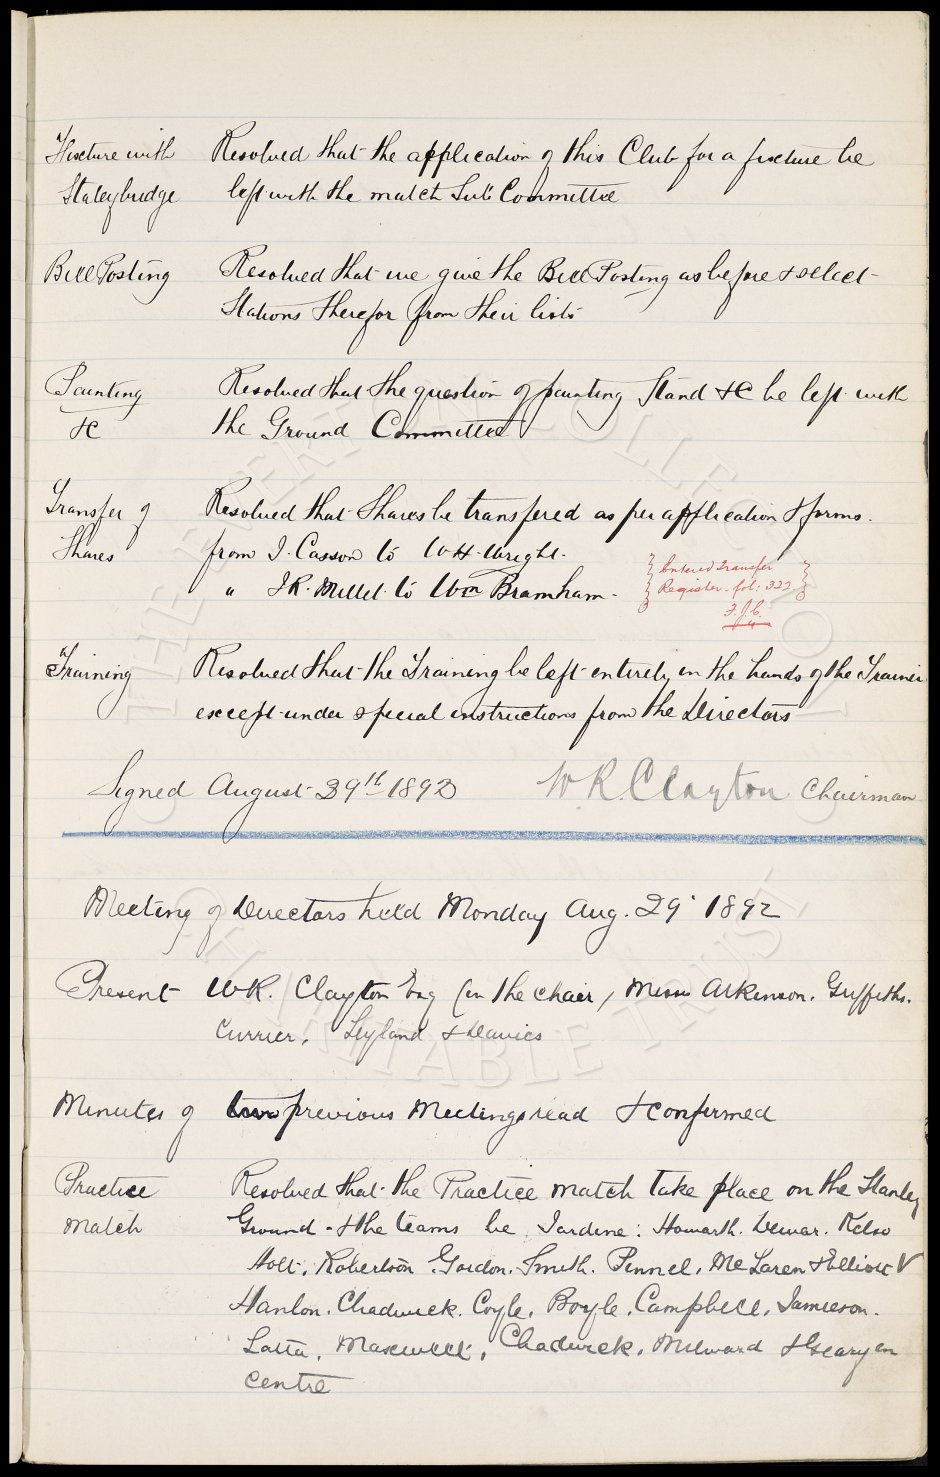 Fixture with Resolved that the application of this Club for a fixture be
Staleybridge left with the match Sub Committee
Bill Posting Resolved that we give the Bill Posting as before & select
Stations therefor from their lists
Painting Resolved that the question of painting Stand &c be left with
&c the Ground Committee
Transfer of Resolved that Shares be transfered as per application & forms.
Shares from J. Casson to W.H. Wright.
" J.R. Millet to Wm Bramham.
Entered Transfer
Register. fol: 322
Training Resolved that the Training be left entirely in the hands of the Trainer
except under special instructions from the Directors
Signed August 29th 1892 W.R. Clayton Chairman
Meeting of Directors held Monday Aug. 29 1892
Present W.R. Clayton Esq (in the chair) Messrs Atkinson. Griffiths.
Currier, Leyland & Davies
Minutes of two previous Meetings read & confirmed
Practice Resolved that the Practice match take place on the Stanley
Match Ground - & the teams be Jardine: Howarth. Dewar. Kelso
Holt, Robertson. Gordon. Smith. Pinnel, McLaren & Elliott V
Hanlon. Chadwick. Coyle, Boyle, Campbell, Jamieson.
Latta, Maxwell, Chadwick, Milward & Geary in
centre
THE EVERTON COLLECTION
CHARITABLE TRUST